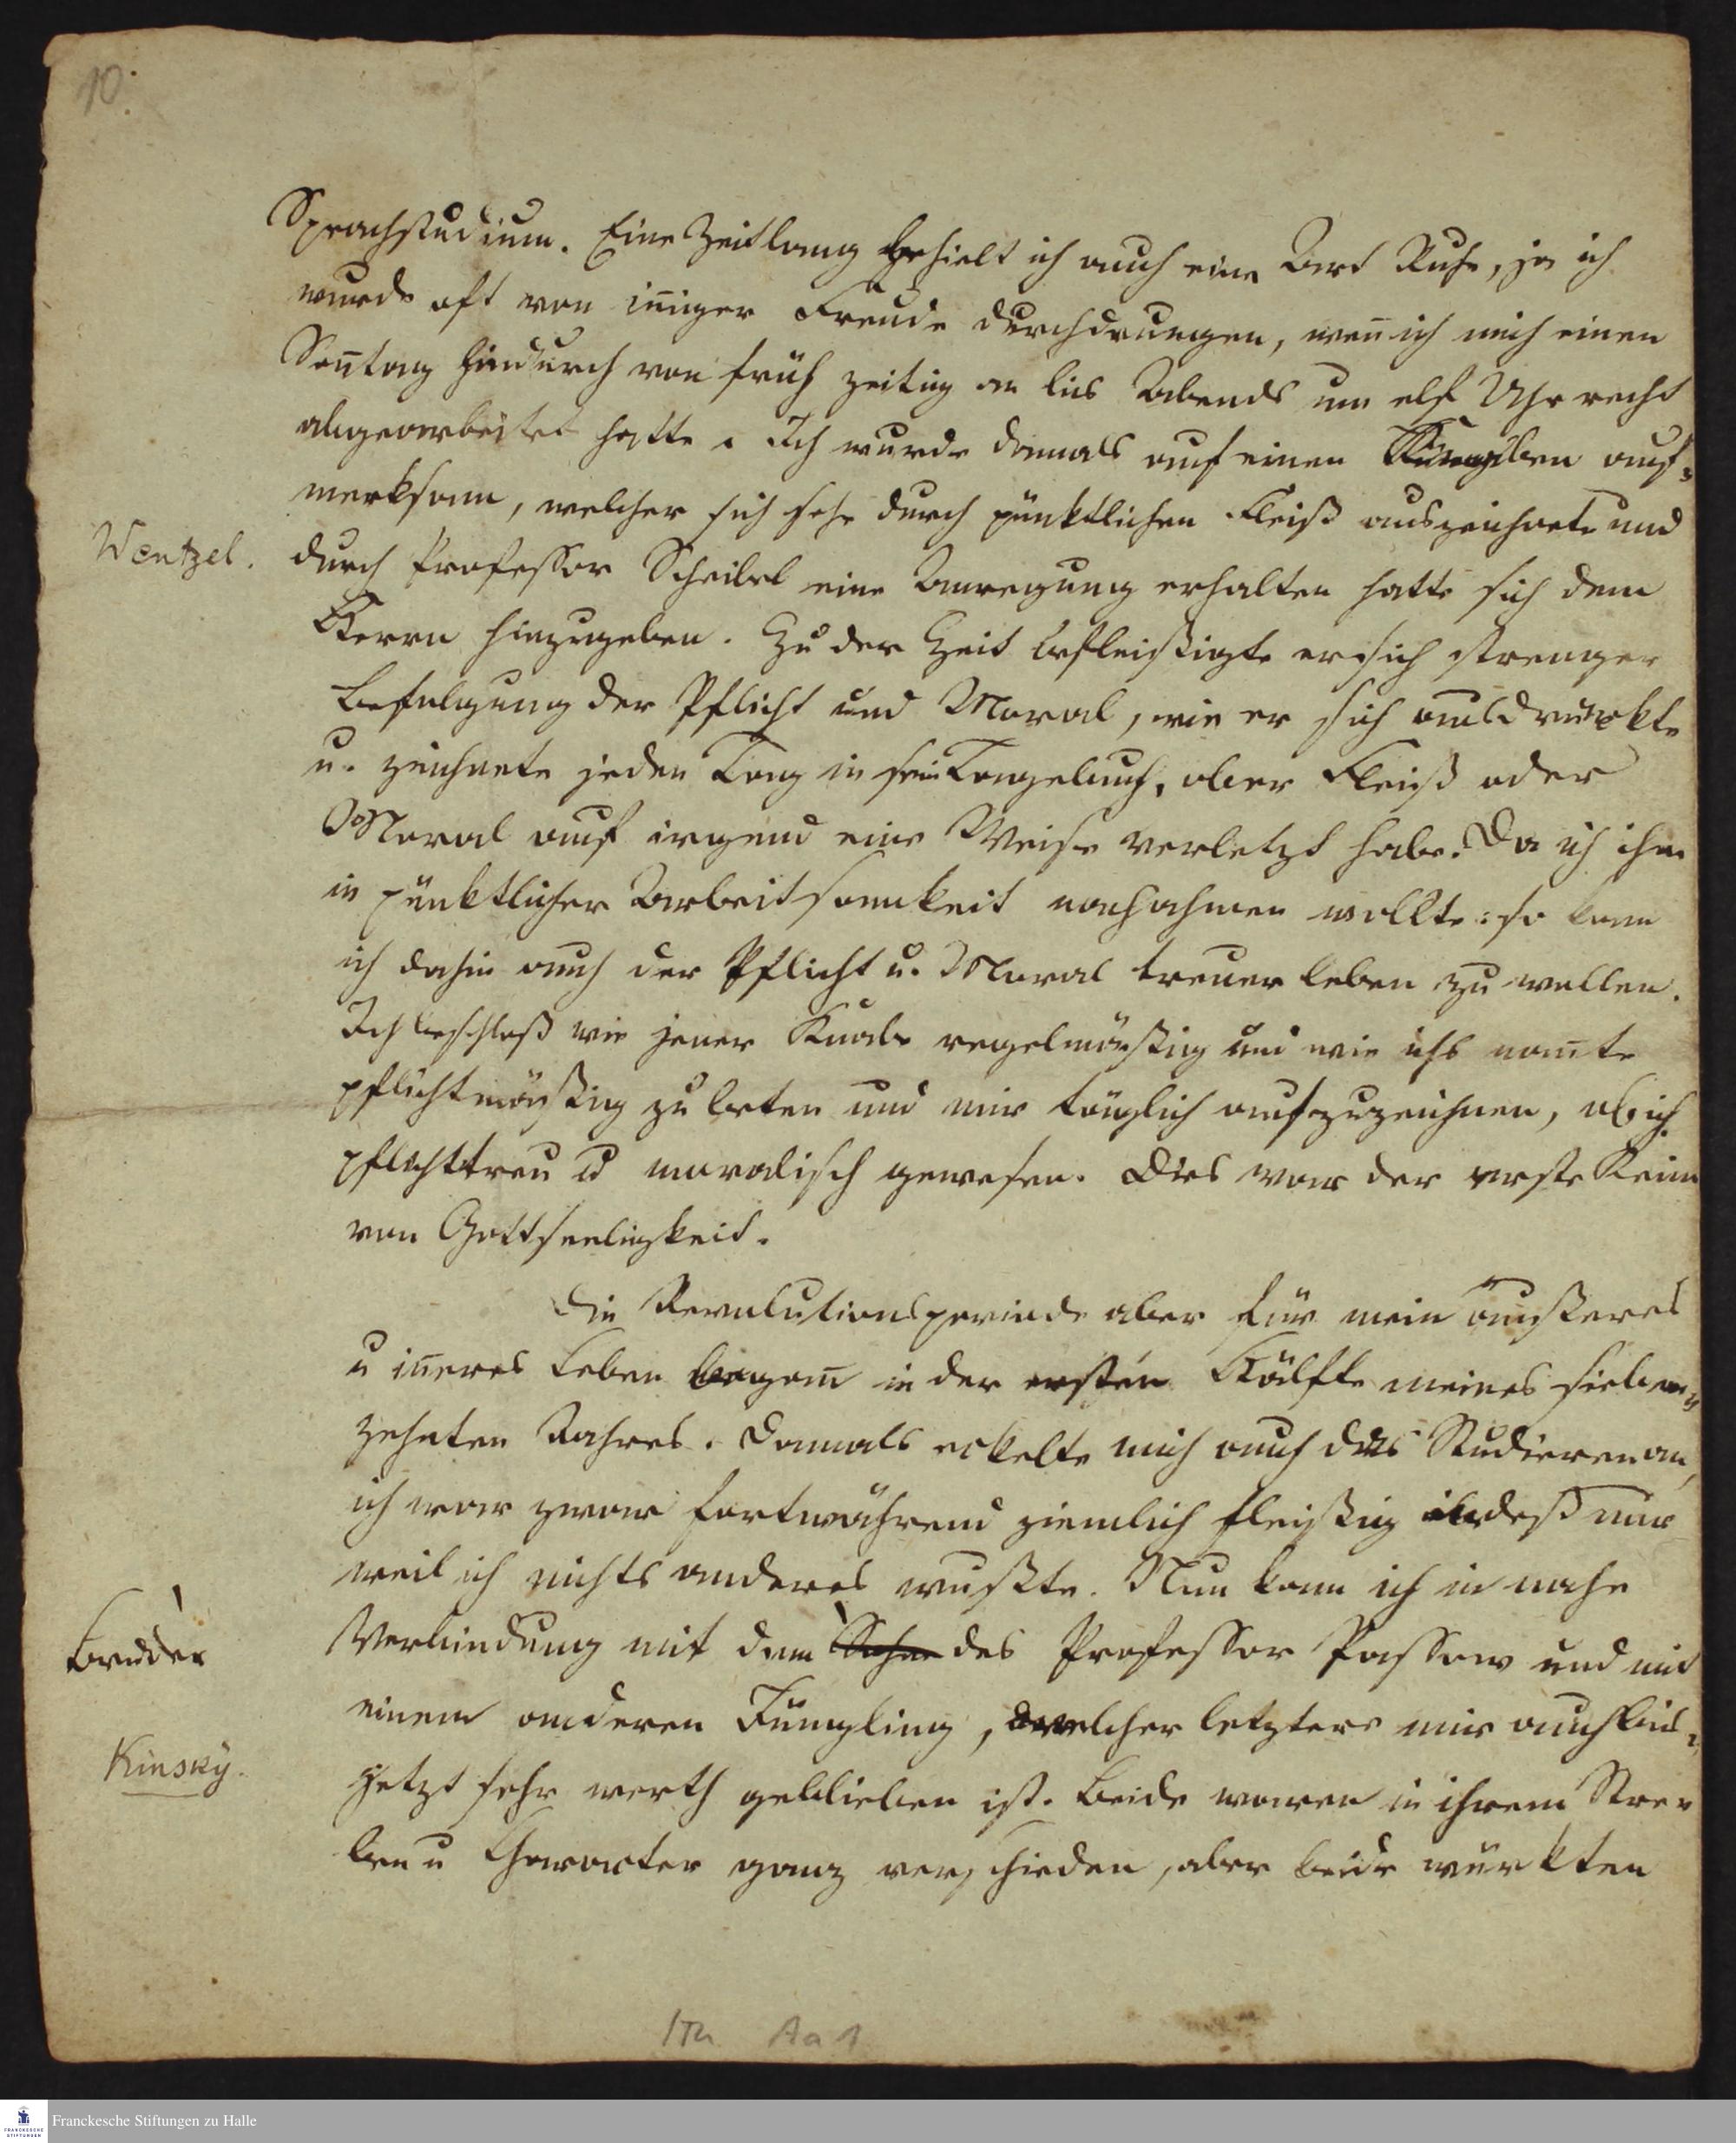 10.
Sprachstudium. Eine Zeitlang behielt ich auch eine Art Ruhe, ja ich
wurde oft von in̅iger Freude durchdrungen, wen̅ ich mich einen
Son̅tag hindurch von früh zeitig an bis Abends um elf Uhr recht
abgearbeitet hatte. Ich wurde damals auf einen Knaben auf=
merksam, welcher sich sehr durch pünktlichen Fleiß auszeichnete und
Wentzel.
durch Professor Scheibel eine Anregung erhalten hatte sich dem
Herrn hinzugeben. Zu der Zeit befleißigte er sich strenger
Befolgung der Pflicht und Moral, wie er sich ausdruckte
u. zeichnete jeden Tag in sein Tagebuch, ob er Fleiß oder
Moral auf irgend eine Weise verletzt habe. Da ich ihm
in pünktlicher Arbeitsamkeit nachahmen wollte: so kam
ich dahin auch der Pflicht u. Moral treuer leben zu wollen.
Ich beschloß wie jener Knabe regelmäßig und wie ichs nan̅te
pflichtmäßig zu beten und mir täglich aufzuzeichnen, ob ich
pflichttreu u moralisch gewesen. Dies war der erste Keim
von Gottseeligkeit.
Die Revolutionsperiode aber für mein äußeres
u in̅eres Leben began̅ in der ersten Hälfte meines sieben=
zehnten Jahres. Damals eckelte mich auch das Studieren an,
ich war zwar fortwährend ziemlich fleißig indeß nur
weil ich nichts anderes wußte. Nun kam ich in nahe
Bruder
Verbindung mit dem Sohne des Professor Passow und mit
einem anderen Jüngling, welcher letztere mir auch bis=
Kinsky.
jetzt sehr werth geblieben ist. Beide waren in ihrem Stre=
ben u Character ganz verschieden, aber beide würkten
1Th Aa 1
FRANCKESCHE STIFTUNGEN
Franckesche Stiftungen zu Halle